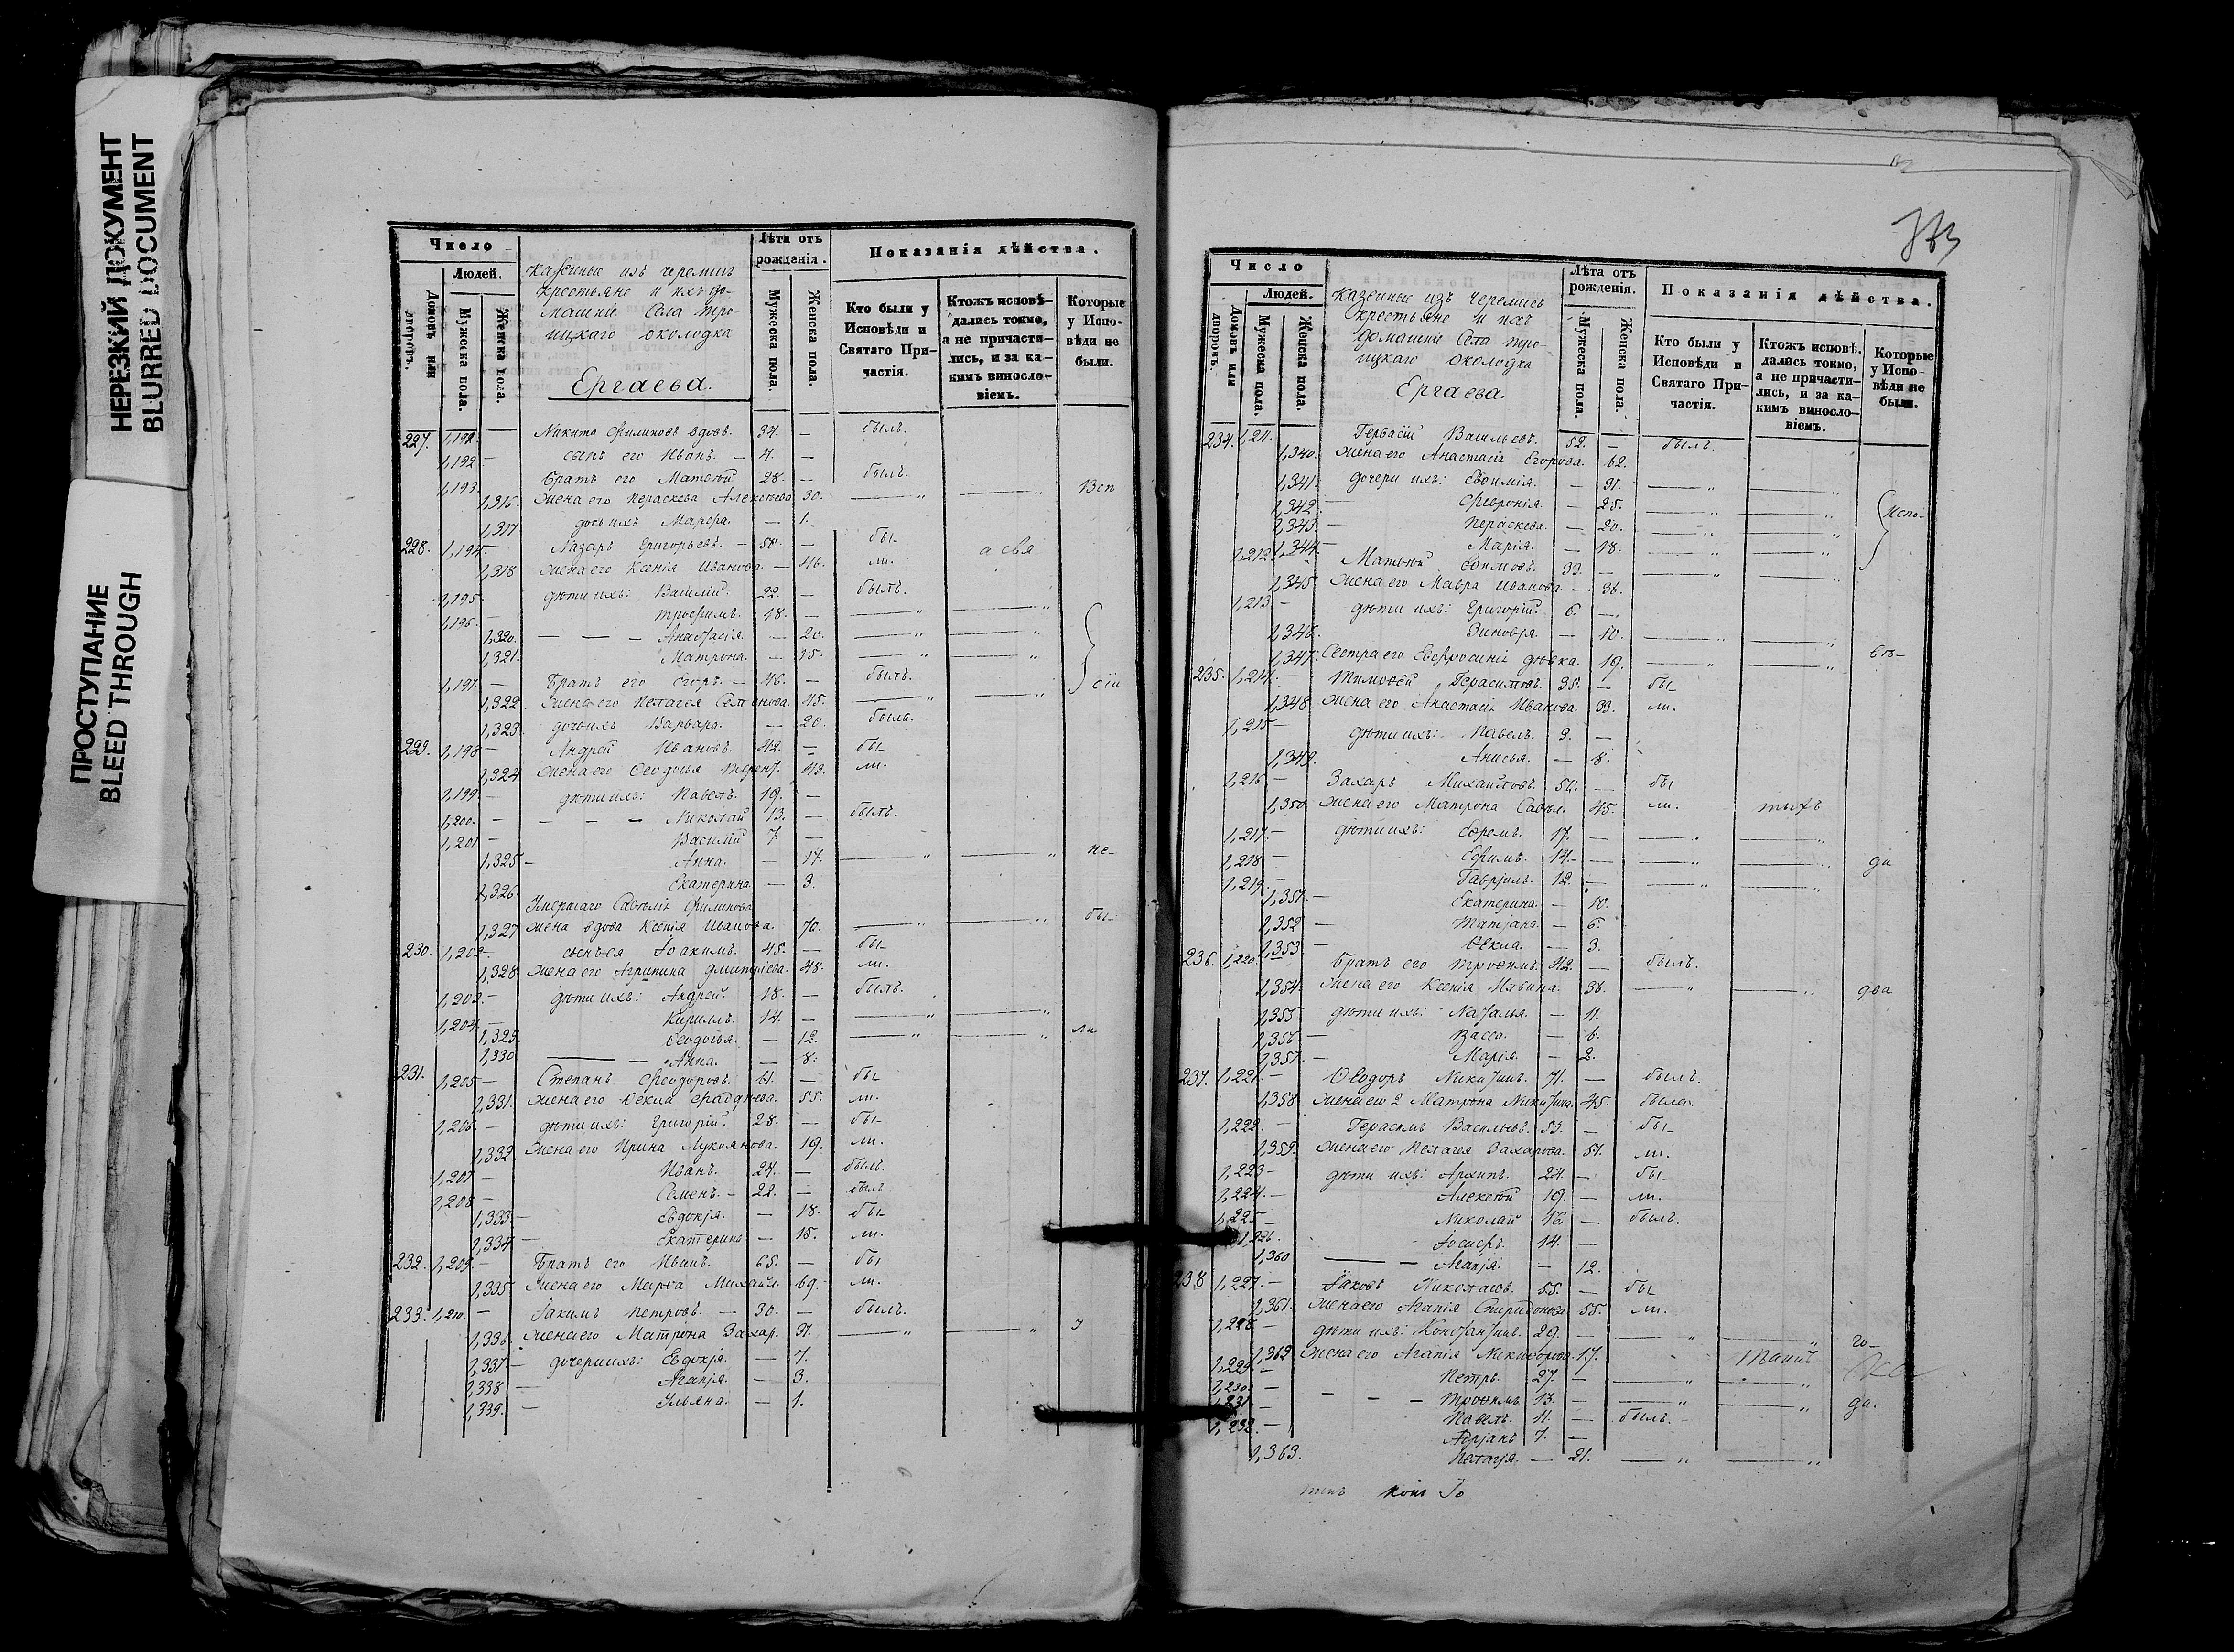 НЕРЕЗКИЙ ДОКУМЕНТ
BLURRED DOCUMENT
ПРОСТУПАНИЕ
BLEED THROUGH
Число
Людей.
Домовъ или дворовъ.
Мужеска пола.
Женска пола.
казенные изъ черемисъ
крестьяне и ихъ до-
машніе Села Тро-
ицкаго околодка
Ергаева.
Лѣта отъ рожденія.
Мужеска пола.
Женска пола.
Показанія дѣйства.
Кто были у Исповѣди и Святаго При-частія.
Ктожъ исповѣ-дались токмо, а не причасти-лись, и за ка-кимъ виносло-віемъ.
Которые у Испо-вѣди не были.
227. 1,191. Никита Филиповъ вдовъ. 34. — былъ.
1,192 — сынъ его Иванъ. — 4. —
1,193 Братъ его Матѳей 28. — былъ.
1,316. жена его Пераскева Алексѣева 30. — " — " Всѣ
1,317 дочь ихъ Марѳа. — 1.
228. 1,194 — Лазарь Григорьевъ. — 50. — бы-
1,318 жена его Ксенія Иванова. — 46. ли.
1,195 дѣти ихъ: Василій. 22. — былъ.
1,196. — Трофимъ. 18. — — " — "
1,320. — — — Анастасія. — 20. — " — "
1,321. Матрона. — 15. — " — "
1,197. — Братъ его Егоръ. — 46. — былъ. сіи
1,322. жена его Пелагея Семенова. 45. — " — "
1,323. дочь ихъ Варвара. — 20. была.
229. 1,198 — Андрей Ивановъ. 42. — бы-
1,324 жена его Ѳеодосья 43. ли.
1,199. — дѣти ихъ: Павелъ. 19. —
1,200. — — — — Николай 13. — былъ.
1,201 — Василій 7. —
1,325 — Анна. — 17. — " — " не-
1,326. Екатерина — 3.
Умершаго Савелія Филипова
1,327 жена вдова Ксенія Иванова. 70. — " — " бы-
230. 1,202 — сынъ ея Іоакимъ. 45. — бы-
1,328 жена его Агрипина Дмитріева. 48. ли.
1,203. — дѣти ихъ: Андрей. 18. — былъ.
1,204. — Кириллъ. 14. — — " — "
1,329. Ѳеодосья. — 12. — " — " ли
1,330 — — Анна. — 8.
231. 1,205 — Степанъ Ѳеодоровъ. 61. — бы-
1,331. жена его Ѳекла 55. ли.
1,206 — дѣти ихъ: Григорій. 28. — бы-
1,332. жена его Ирина Лукоянова. 19. ли.
1,207 — Иванъ. 24. — былъ.
1,208 — Семенъ. — 22. — былъ.
1,333. — Евдокія. — 18. бы-
1,334 — Екатерина — 15. ли.
232. 1,209. — Братъ его Иванъ. 65. — бы-
1,335 жена его Марѳа Михайл. 69. ли.
233. 1,210. — Іакимъ Петровъ. — 30. — былъ.
1,336. жена его Матрона Захар. 31. — " — " у
1,337 — дочери ихъ: Евдокія. — 7.
1,338 — Агапія. — 3.
1,339. — Ульяна. — 1.
Число
Людей.
Домовъ или дворовъ.
Мужеска пола.
Женска пола.
казенные изъ черемисъ
крестьяне и ихъ
домашніе Села Тро-
ицкаго околодка
Ергаева.
Лѣта отъ рожденія.
Мужеска пола.
Женска пола.
Показанія дѣйства.
Кто были у Исповѣди и Святаго При-частія.
Ктожъ исповѣ-дались токмо, а не причасти-лись, и за ка-кимъ виносло-віемъ.
Которые у Испо-вѣди не были.
234. 1,211. Гервасій Васильевъ. 52. — былъ.
1,340. жена его Анастасія Егорова. 62.
1,341. дочери ихъ: Евѳимія. — 31. — " — "
1,342. — Ѳевронія. — 25. — " — " Испо-
1,343. — Пераскева. — 20. — " — "
1,344. — Марія. — 18. — " — "
1,212. Матѳей Ефимовъ. 33. — — " — "
1,345 жена его Мавра Иванова. — 36.
1,213 — дѣти ихъ: Григорій. 6. —
1,346. Зиновья. — 10. — " — "
1,347. Сестра его Евфросинія дѣвка. 19. — " — " вѣ-
235. 1,214. — Тимоѳей Герасимовъ. 35. — бы-
1,348 жена его Анастасія Иванова. 33. ли.
1,215 — дѣти ихъ: Павелъ. 9. —
1,349. Анисья. — 8.
1,216 — Захаръ Михайловъ. 50. — бы-
1,350. жена его Матрона Савел. 45. ли.
1,217 — дѣти ихъ: Ефремъ. 17. — — " — "
1,218 — Ефимъ. 14. — — " — " ди
1,219. — Гавріилъ. 12. — — " — "
1,351. — Екатерина. — 10.
1,352 — Татіана. — 6.
1,353 — Ѳекла. — 3.
236. 1,220. Братъ его Трофимъ 42. — былъ.
1,354. жена его Ксенія Ильина. 38. — " — " два
1,355 дѣти ихъ: Наталья. — 11.
1,356 — Васса. — 6.
1,357. — Марія. — 2.
237. 1,221. — Ѳеодоръ Никитинъ. 71. — былъ.
1,358 жена его 2 Матрона Никитина. 45. была.
1,222. — Герасимъ Васильевъ. 53. — бы-
1,359. жена его Пелагея Захарова. 51. ли.
1,223 — дѣти ихъ: Архипъ. 24. — бы-
1,224. — Алексѣй 19. — ли.
1,225 — Николай 16 — былъ.
1,226. Іосифъ. 14. —
1,360 — — Агапія. — 12.
238 1,227. — Іаковъ Николаевъ. 55. — бы-
1,361. жена его Агапія Спиридонова. 55. ли.
1,228. — дѣти ихъ: Константинъ. 29. — — " — " го-
1,362 жена его Агапія Никифорова. 17.
1,229. — Петръ. 27. — — " — "
1,230. — — — — Трофимъ 13. — — " — " да.
1,231. — Павелъ. 11. — былъ.
1,232. — Адріанъ 7. —
1,363. Пелагія. — 21. — " — "